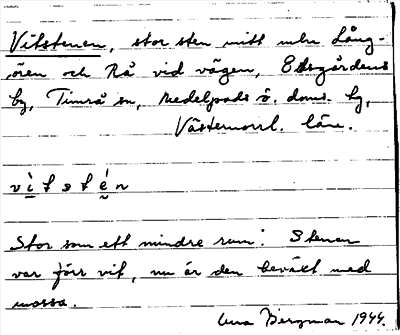 Vitstenen, stor sten mitt mln Lång-
ören och Rå vid vägen, Edsgårdens
by, Timrå sn, Medelpads ö. doms. hg,
Västernorrl. län.
v ì t s t é n
Stor som ett mindre rum. Stenen
var förr vit, nu är den beväxt med
mossa.
Bergman 1944.